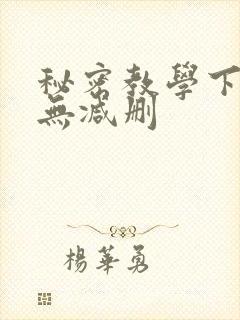 秘密教學下
無減刪
楊華勇